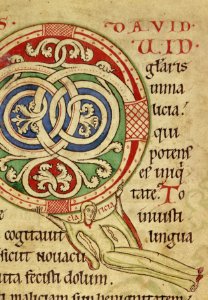 S DAVID
U ID
glaris
inma
licia.
qui
potens
es iniq
tate. To
iniusti
cogitauit lingua
sicut nouacu
ta fecisti dolum.